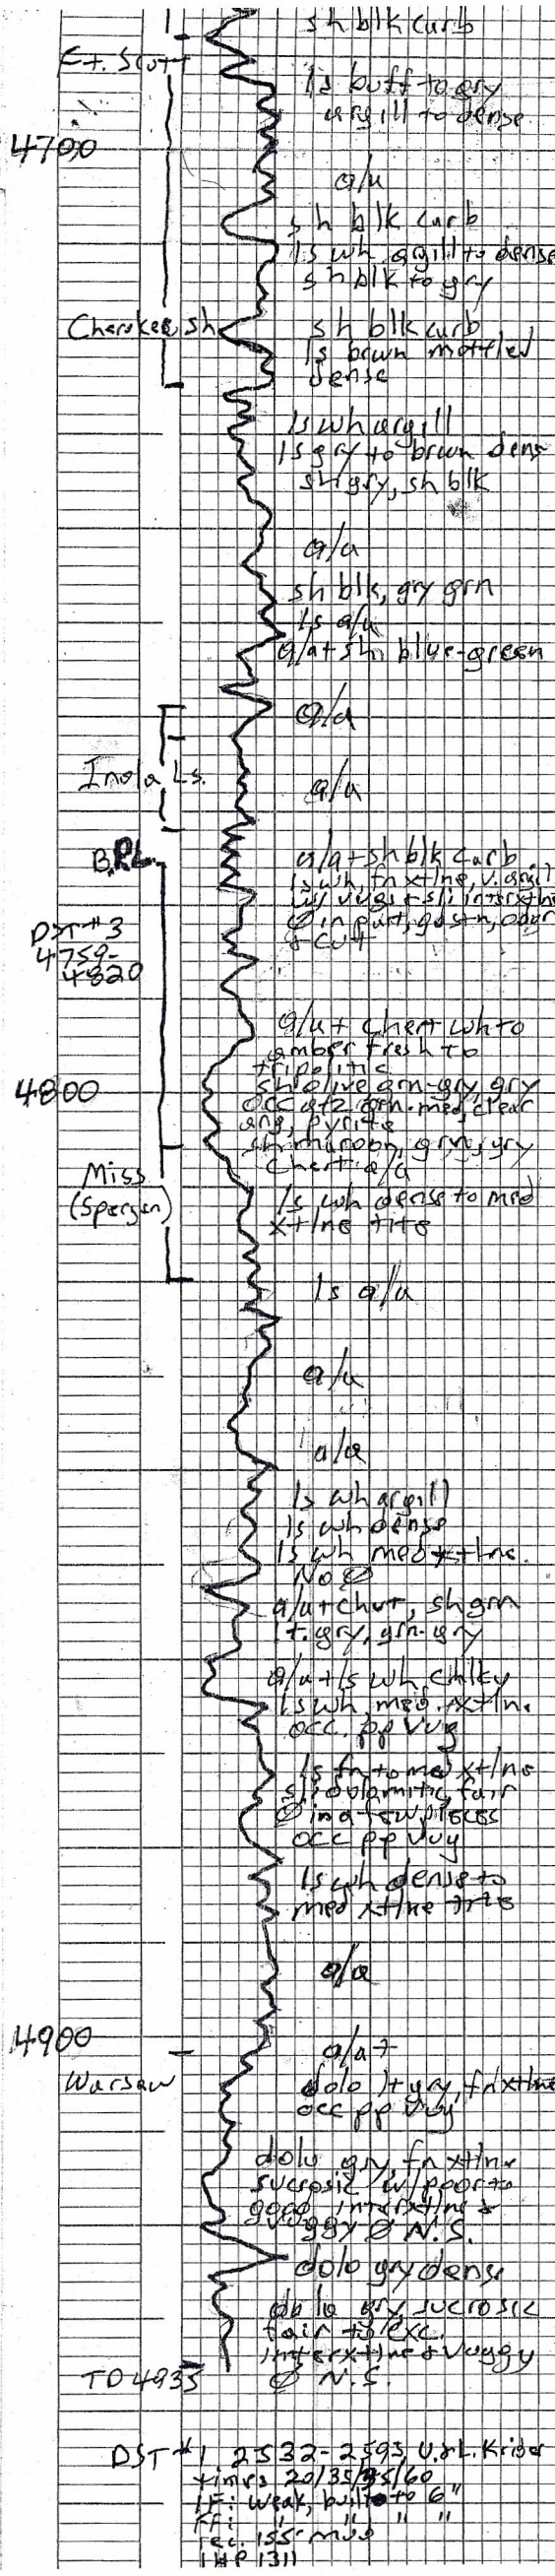 sh blk carb
Ft. Scott
ls buff to gry
argill to dense
4700
a/a
sh blk carb
ls wh argill to dense
sh blk to gry
Cherokee sh
sh blk carb
ls brwn mottled
dense
ls wh argill
ls gry to brwn dens
sh gry, sh blk
a/a
sh blk, gry grn
ls a/a
a/a + sh blue-green
a/a
Inola Ls.
a/a
B.P.L.
a/a + sh blk carb
ls wh, fn xtlne, v. argil
w/ vugs + sli interxtlne
Ø in part, gas tn, odor
+ cut
DST #3
4759-
4820
a/a + chert wh to
amber fresh to
tripolitic
4800
sh olive grn-gry, gry
occ qtz grn. med, clear
ang, pyrite
sh maroon, grn, gry
chert a/a
Miss
(Spergen)
ls wh dense to med
xtlne tite
ls a/a
a/a
a/a
ls wh argill
ls wh dense
ls wh med xtlne.
No Ø
a/a + chert, sh grn
lt. gry, grn-gry
a/a + ls wh, chlky
ls wh, med. xtln.
occ. pp vug
ls fn to med xtlne
sli dolomitic, fair
Ø in a few pieces
occ pp vug
ls wh dense to
med xtlne tite
a/a
4900
a/a +
Warsaw
dolo lt gry, fn xtlne
occ pp vug
dolo gry, fn xtlne
sucrosic w/ poor to
good interxtlne &
vuggy Ø N.S.
dolo gry dense
dolo gry, sucrosic
fair to exc.
interxtlne & vuggy
TD 4935
Ø N.S.
DST #1 2532-2593 U.&L. Krider
times 20/35/35/60
IF: weak, built to 6"
FF: " " " "
rec. 155' mud
IHP 1311